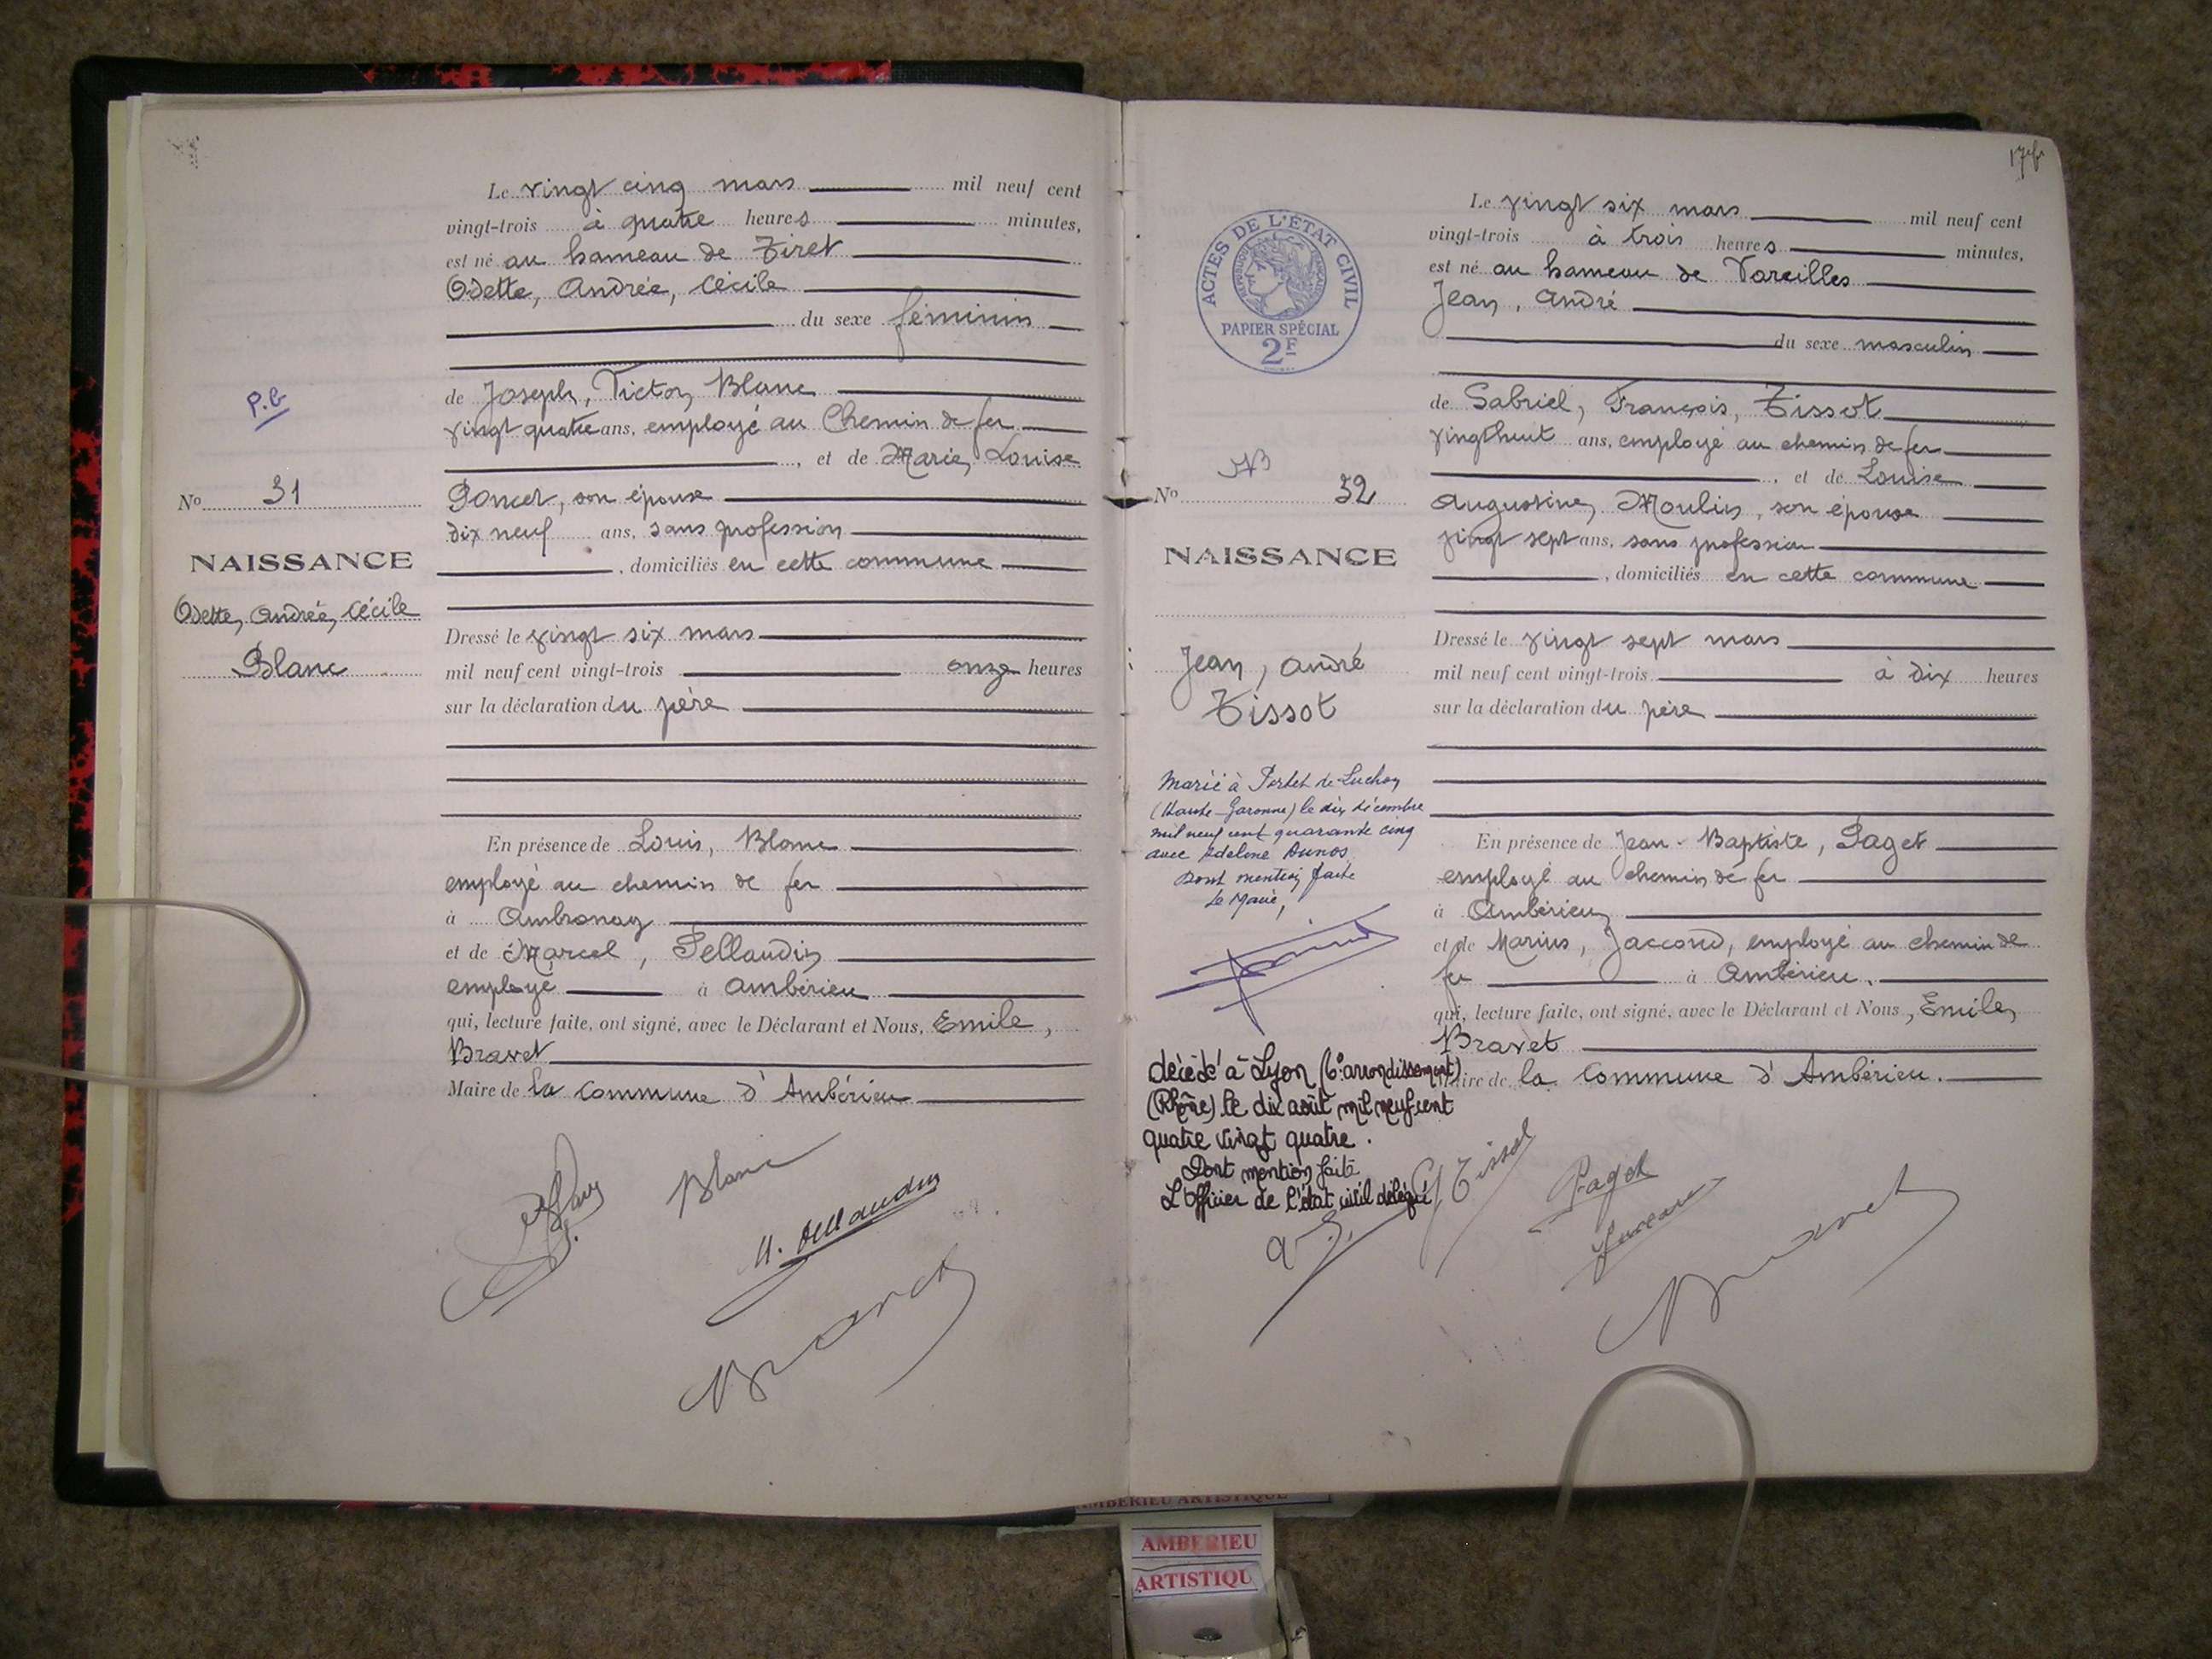 Le vingt cinq mars mil neuf cent
vingt-trois à quatre heures minutes,
est né au hameau de Tiret
Odette, Andrée, Cécile
du sexe féminin
de Joseph, Victor, Blanc
vingt quatre ans, employé au Chemin de fer
, et de Marie, Louise
Poncet, son épouse
dix neuf ans, sans profession
, domiciliés en cette commune
Dressé le vingt six mars
mil neuf cent vingt-trois onze heures
sur la déclaration du père
En présence de Louis, Blanc
employé au chemin de fer
à Ambronay
et de Marcel, Pellaudin
employé à Ambérieu
qui, lecture faite, ont signé, avec le Déclarant et Nous, Emile,
Bravet
Maire de la Commune d'Ambérieu
P.B
No 31
NAISSANCE
Odette, Andrée, Cécile
Blanc
Blanc
M. Pellaudin
Bravet
Le vingt six mars mil neuf cent
vingt-trois à trois heures minutes,
est né au hameau de Vareilles
Jean, André
du sexe masculin
de Gabriel, François, Tissot
vingt huit ans, employé au chemin de fer
, et de Louise
Augustine, Moulin, son épouse
vingt sept ans, sans profession
, domiciliés en cette commune
Dressé le vingt sept mars
mil neuf cent vingt-trois à dix heures
sur la déclaration du père
En présence de Jean-Baptiste, Paget
employé au chemin de fer
à Ambérieu
et de Marius, Jaccoud, employé au chemin de
fer à Ambérieu.
qui, lecture faite, ont signé, avec le Déclarant et Nous, Emile,
Bravet
Maire de la Commune d'Ambérieu.
ACTES DE L'ÉTAT CIVIL
PAPIER SPÉCIAL
2F
No 32
NAISSANCE
Jean, André
Tissot
Marié à Portet de Luchon
(Haute-Garonne) le dix décembre
mil neuf cent quarante cinq
avec Adeline Aunos
Dont mention faite
Le Maire,
décédé à Lyon (6e arrondissement)
(Rhône) le dix août mil neuf cent
quatre vingt quatre.
Dont mention faite
L'Officier de l'état civil délégué
G Tissot
Paget
Jaccoud
Bravet
AMBERIEU ARTISTIQUE
AMBERIEU
ARTISTIQU